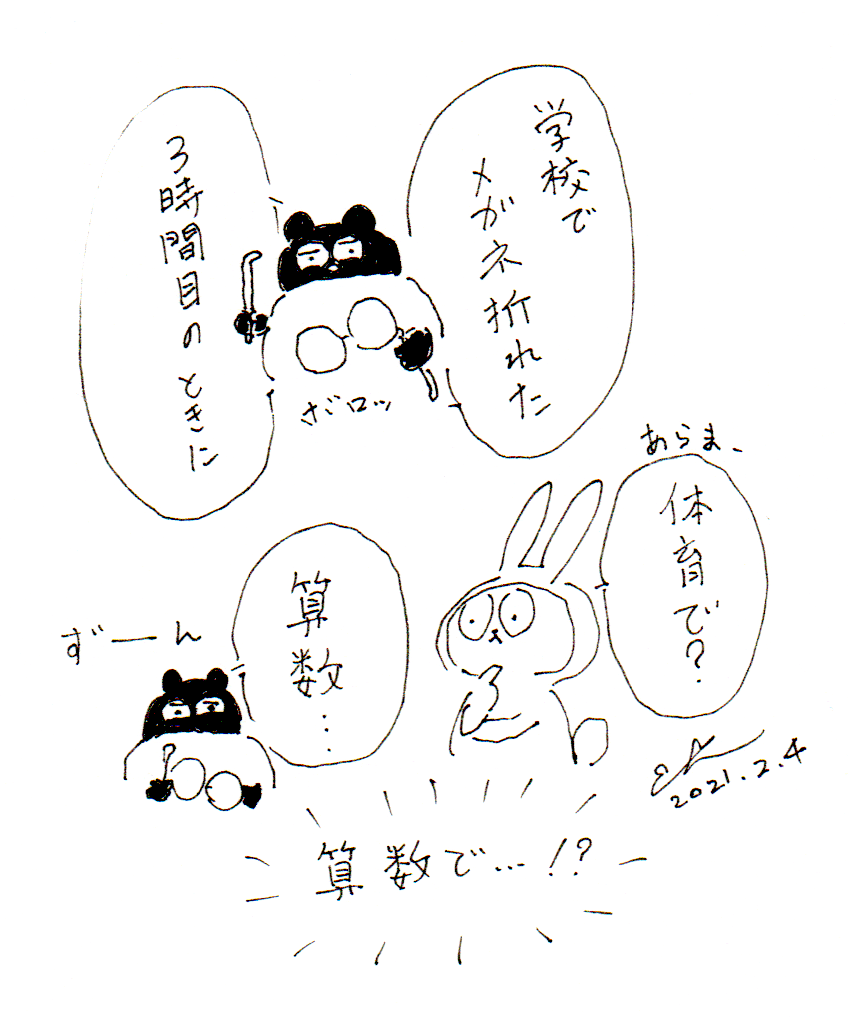 学校で
メガネ折れた
3時間目のときに
ボロッ
あらま、
体育で?
算数…
ずーん
2021.2.4
算数で…!?